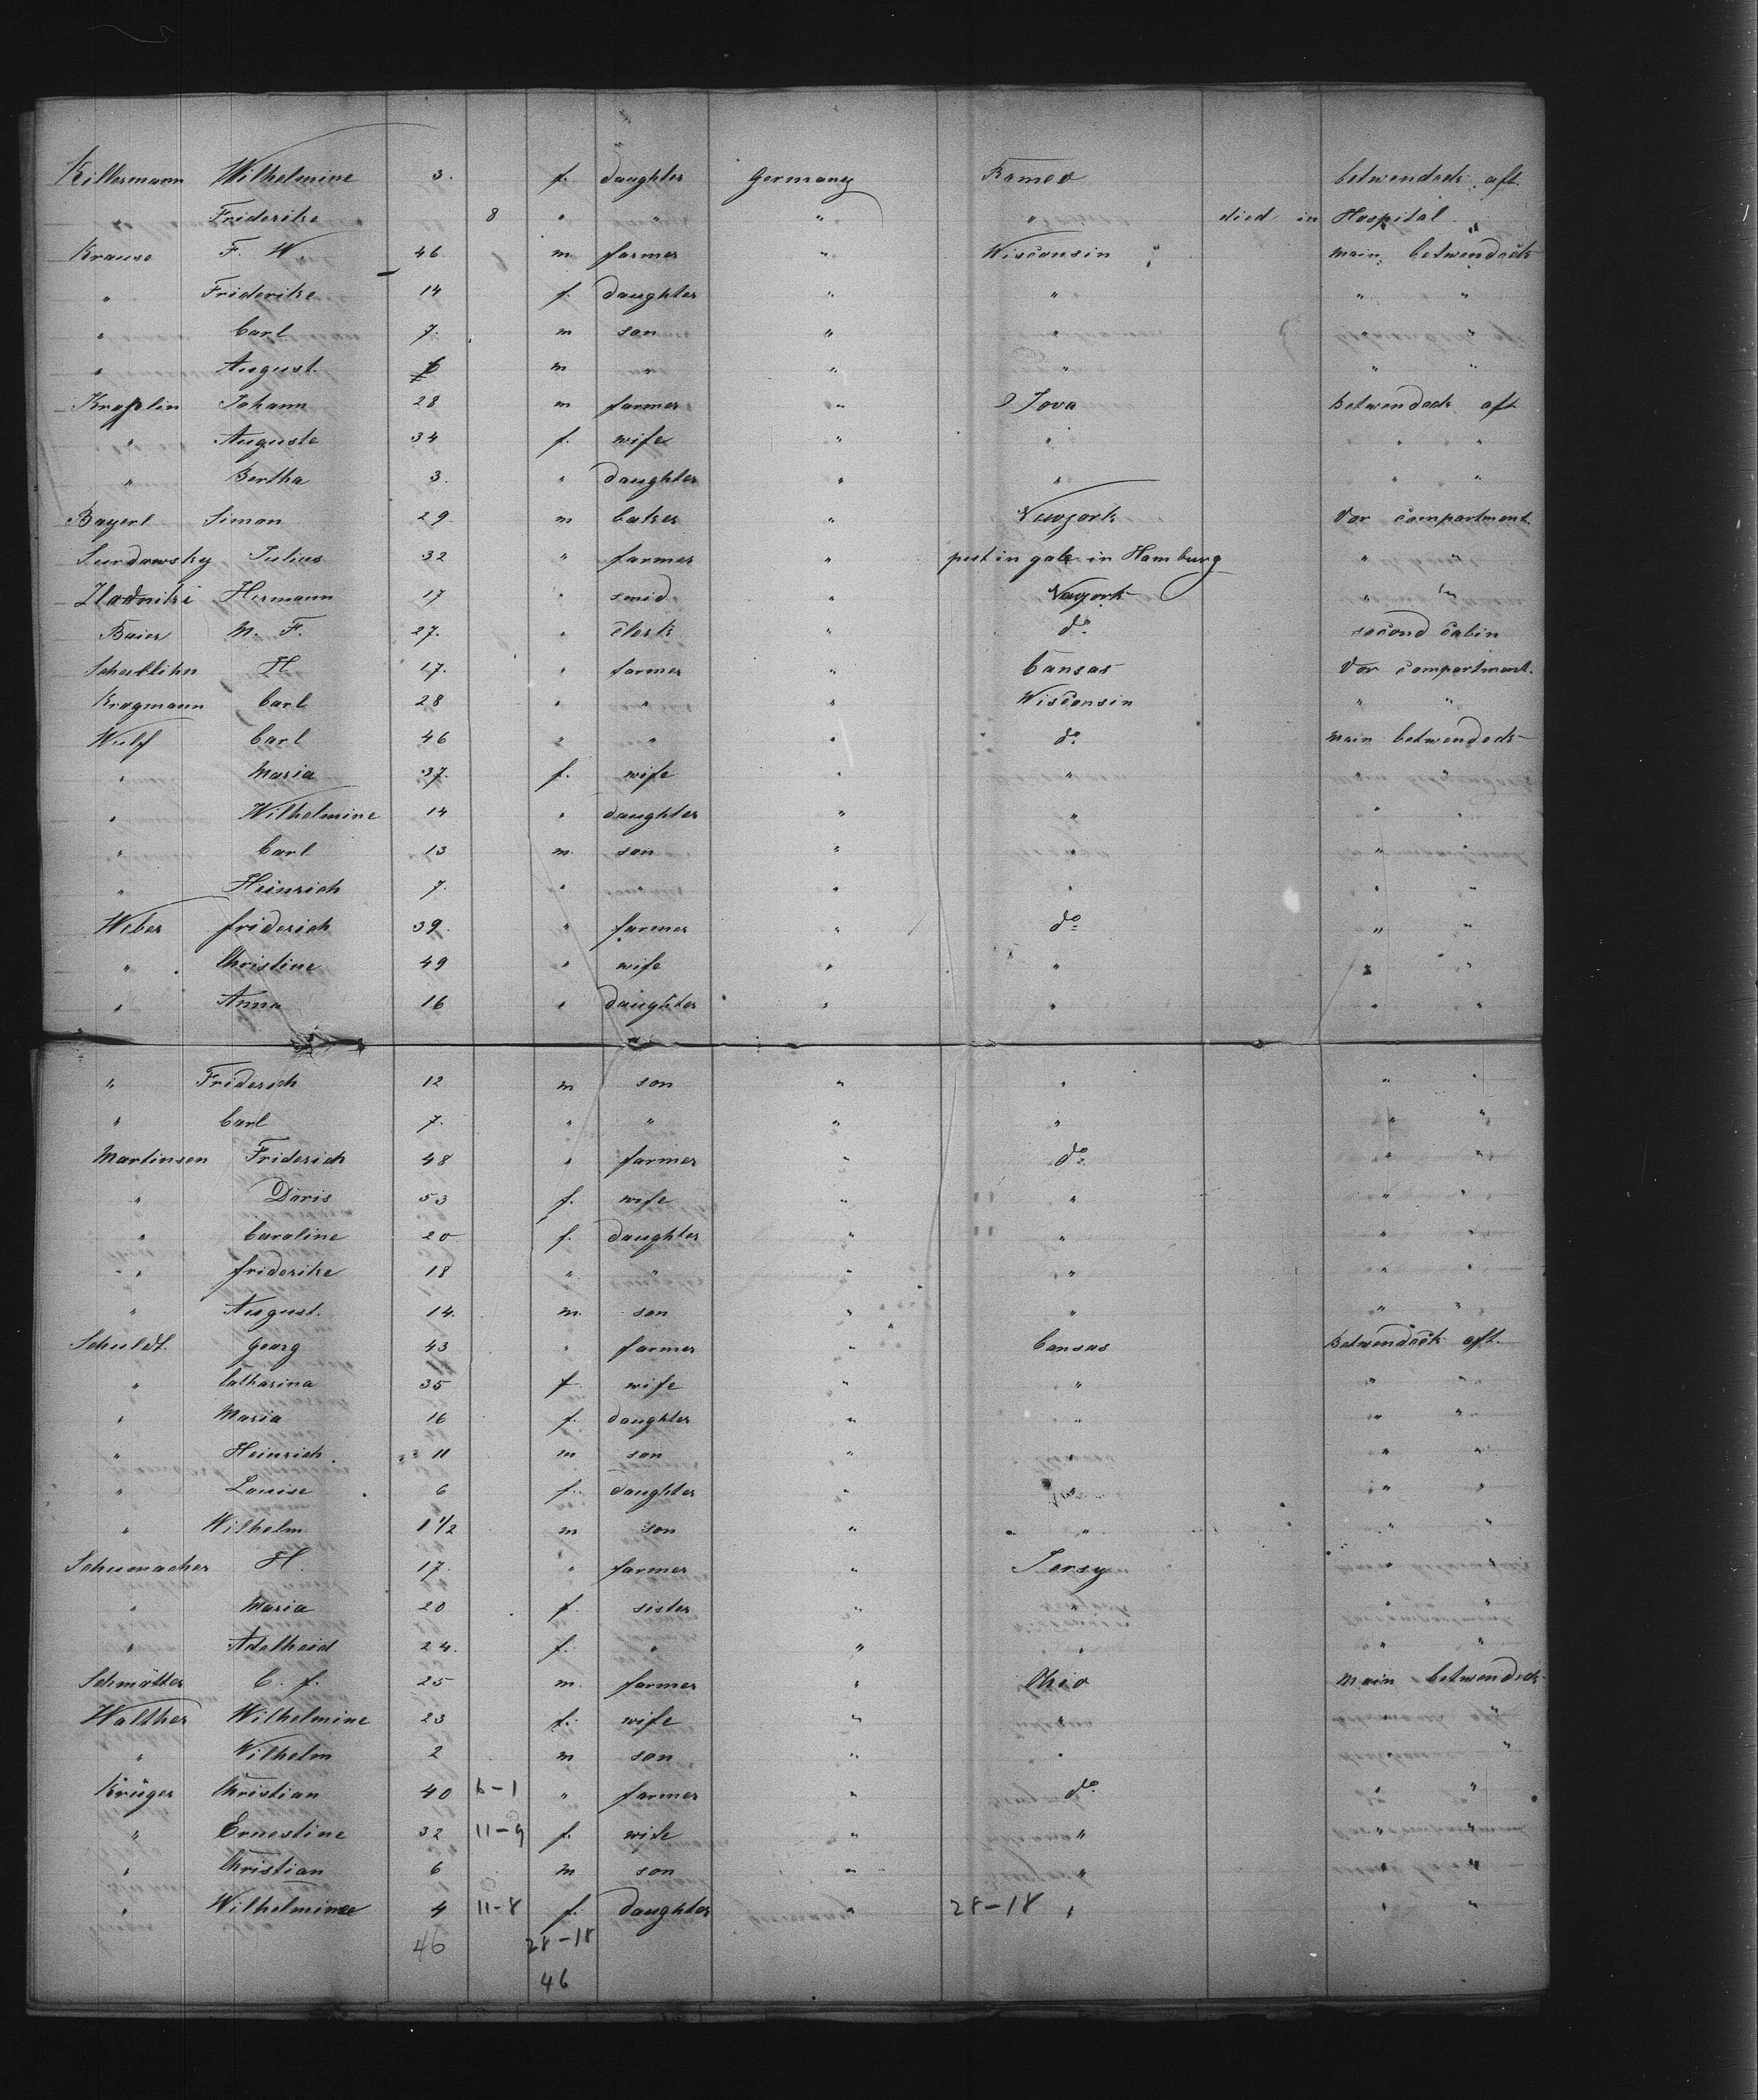 Killermann Wilhelmine 3. f. daughter Germany Romeo betwendeck aft.
" Friderike 8 " " " " died in Hospital
Krause F. W. 46 m farmer " Wisconsin main betwendeck
" Friderike 14 f. daughter " " " "
" Carl 7. m son " " " "
" August m " " " " "
Kröplin Johann 28 m farmer " Iova Betwendeck aft
" Auguste 34 f. wife " " " "
" Bertha 3. " daughter " " " "
Bayerl Simon 29. m baker " Newyork Vor compartment
Surdowsky Julius 32 " farmer " put in gale in Hamburg " "
Hermann 17 " smid " Nayork " "
Baier M. F. 27. " clerk " do. second cabin
H. 17. " farmer " Cansas Vor compartment.
Kragmann Carl 28 " " " Wisconsin " "
Wulf Carl 46 " " " do. main betwendeck
" Maria 37. f. wife " " " "
" Wilhelmine 14 " daughter " " " "
" Carl 13 m. son " " " "
" Heinrich 7. " " " " " "
Weber friderich 39. " farmer " do. " "
" Christine 49 " wife " " " "
" Anna 16 " daughter " " " "
" Friderich 12 m son " " " "
" Carl 7. " " " " " "
Martinsen Friderich 48 " farmer " do. " "
" Doris 53 f. wife " " " "
" Caroline 20 f. daughter " " " "
" friderike 18 " " " " " "
" August. 14. m. son " " " "
Schuldt Georg 43 " farmer " Cansas Betwendeck aft.
" Catharina 35 f. wife " " " "
" Maria 16 f. daughter " " " "
" Heinrich. 11 m son " " " "
" Louise 6 f. daughter " " " "
" Wilhelm 1 1/2 m son " " " "
Schumacher H. 17. " farmer " Jersy " "
" Maria 20 f. sister " " " "
" Adelheid 24. f. " " " " "
Schmötter C. f. 25 m. farmer " Ohio main betwendeck
Walther Wilhelmine 23 f. wife " "
" Wilhelm 2 m son " " " "
Krüger Christian 40 6-1 " farmer " do. " "
" Ernestine 32 11-9 f. wife " " " "
" Christian 6 m son " " " "
" Wilhelmine 4 11-8 f. daughter " 28-18 " " "
46 28-18
46